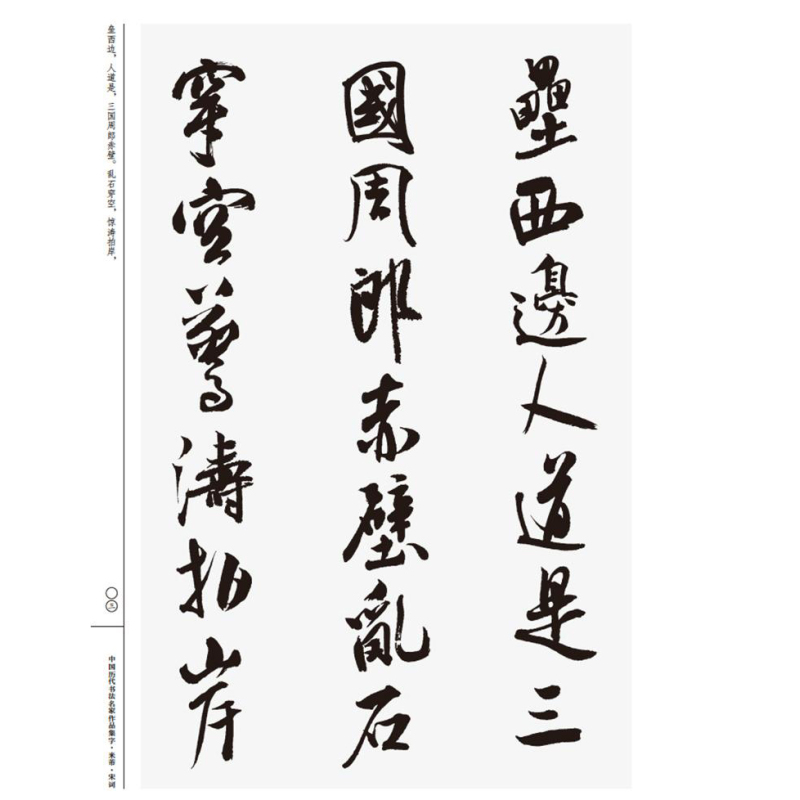 壘西邊人道是三
國周郎赤壁亂石
穿空驚濤拍岸
垒西边，人道是，三国周郎赤壁。乱石穿空，惊涛拍岸，
〇三
中国历代书法名家作品集字·米芾·宋词